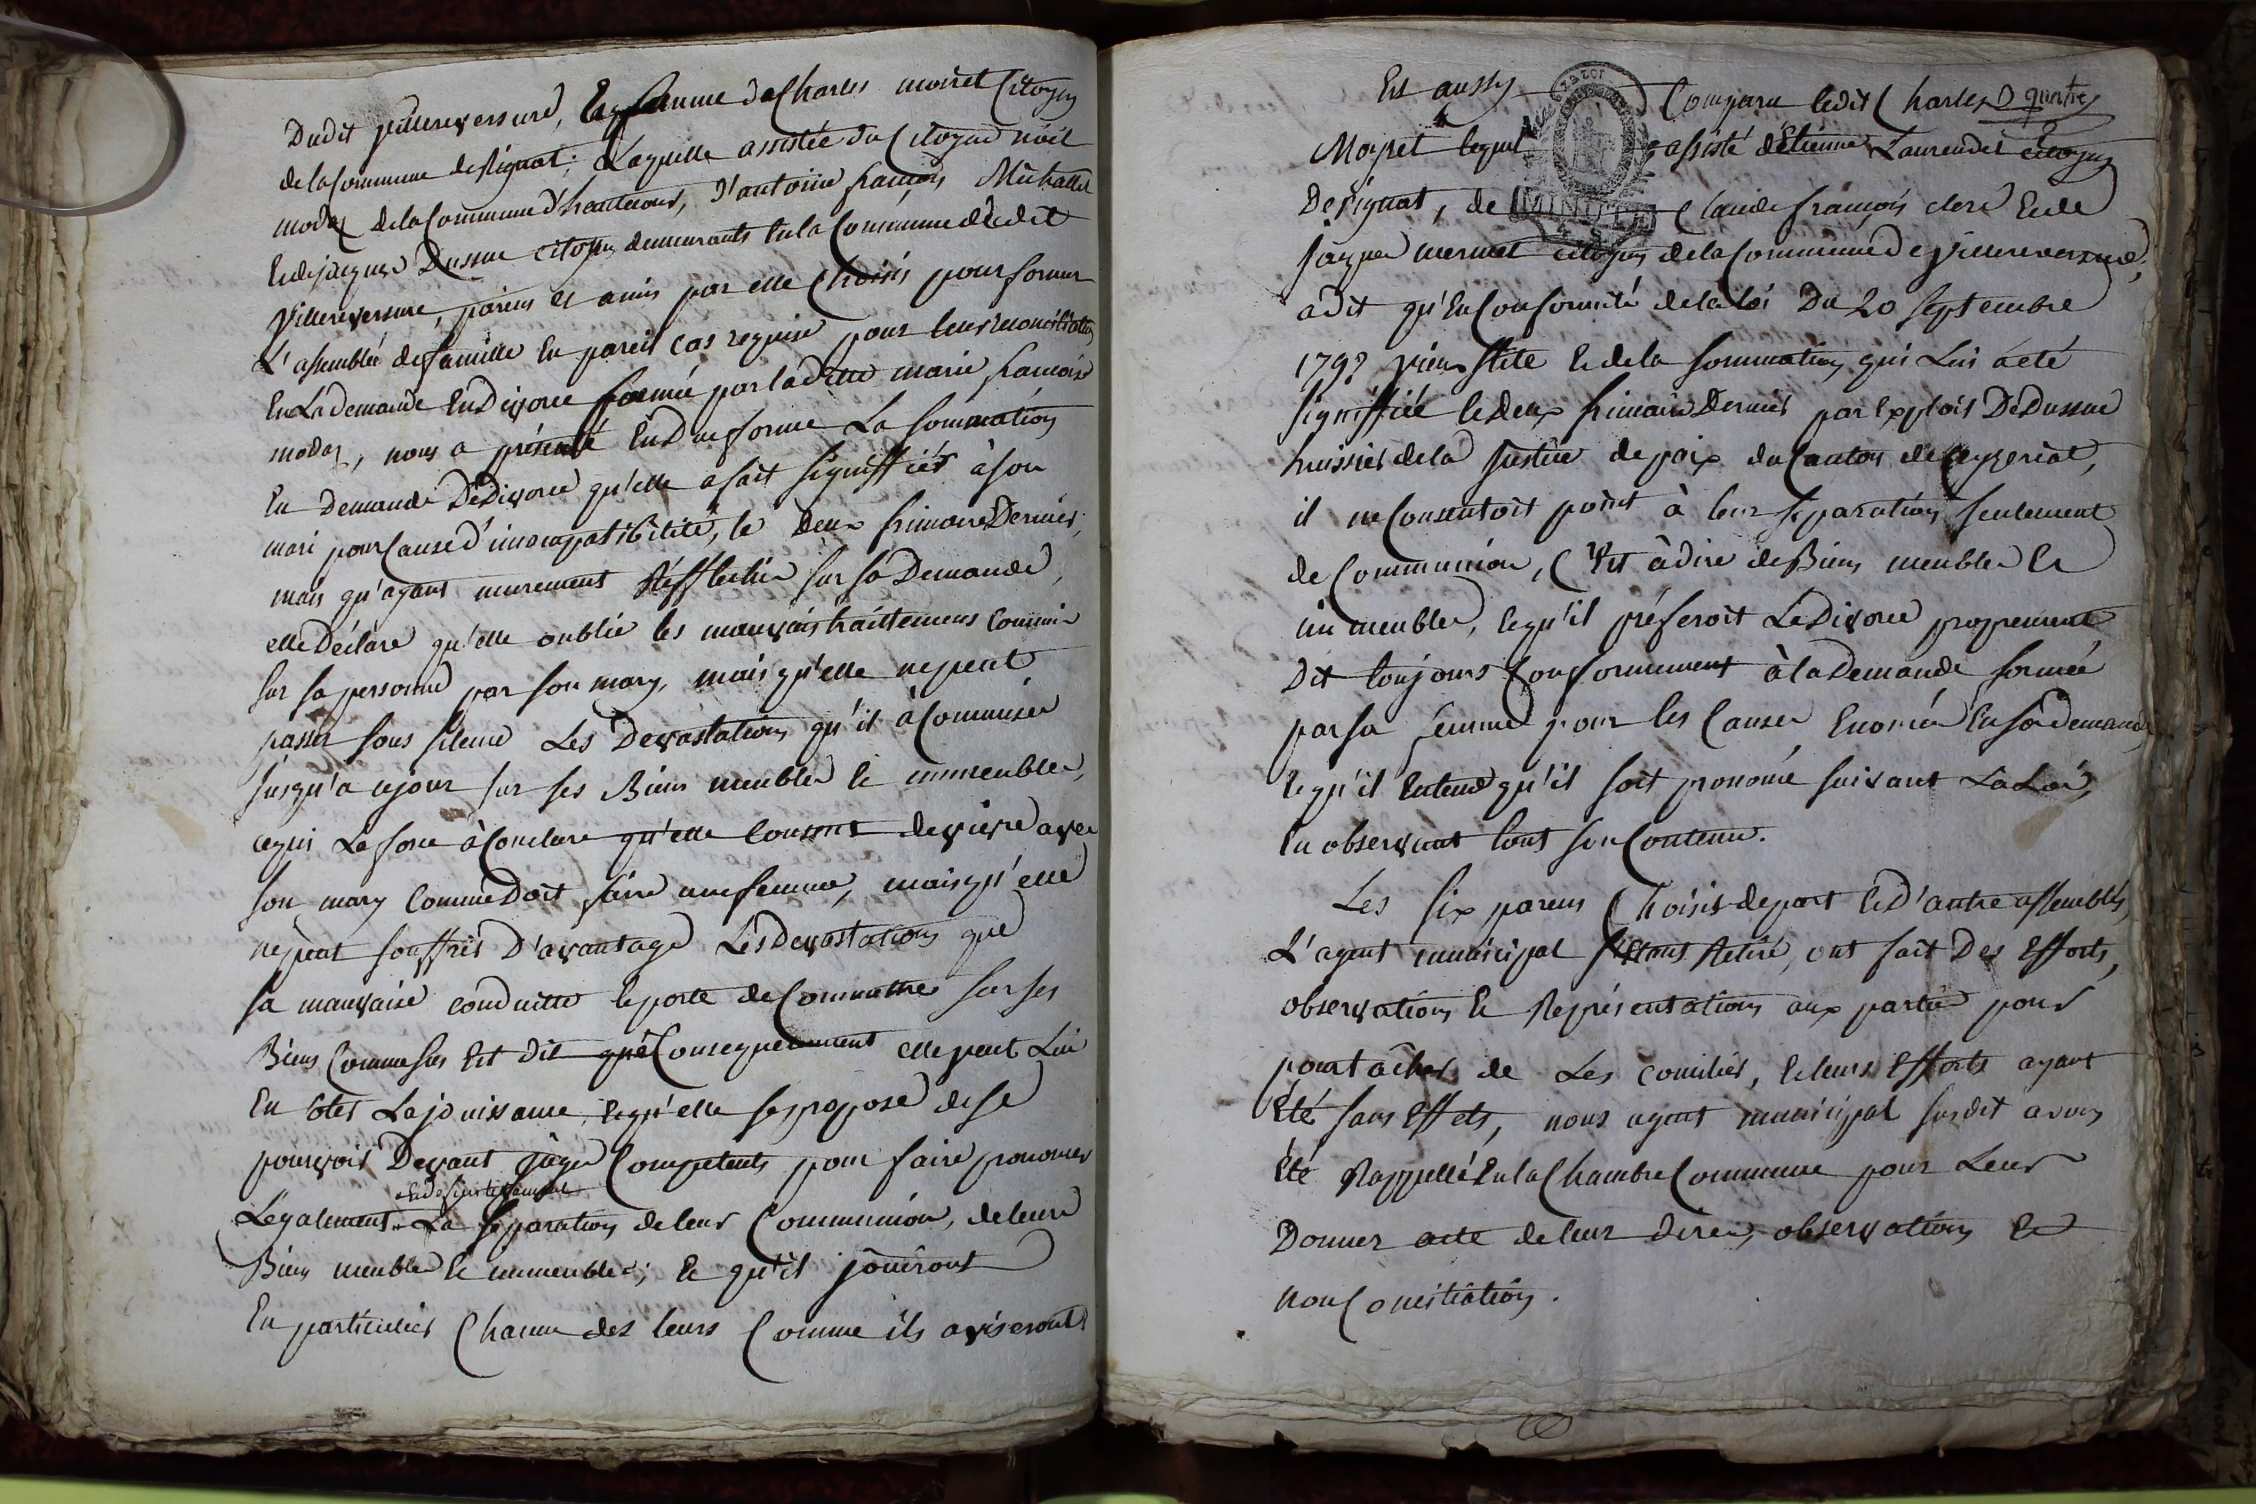 Dudit villereversure, Et femme de Charles moiret Citoyen
de la Commune de Rignat; Laquelle assistée du Citoyen noël
modas de la Commune d'hautecour, d'antoine françois Michallet
Et de jacques Dussuc citoyens demeurants En la Commune dudit
Villereversure, parens et amis par elle Choisis pour former
L'assemblée de famille En pareil cas requise pour leur réconciliation
En La demande En Divorce formée par ladite marie françoise
modas, nous a présenté En Due forme La sommation
En Demande De Divorce qu'elle a fait signiffier à son
mari pour Cause d'incompatibilité, le deux frimaire Dernier,
mais qu'ayant murement Réffléchie sur sa Demande,
elle Déclare qu'elle oublie les mauvais traittemens Commis
sur sa personne par son mary, mais qu'elle ne peut
passer sous silence Les Dévastations qu'il à Commises
jusqu'a ce jour sur ses Biens meubles Et immeubles,
ce qui La force à Conclure qu'elle Consent de vivre avec
son mary Comme Doit faire une femme, mais qu'elle
ne peut souffrir D'avantage Les Devastations que
sa mauvaise conduitte le porte de Commettre sur ses
Biens Comme sus Est dit que Consequemment elle peut Lui
En ôter La jouissance, Et qu'elle se propose de se
pourvoir Devant juges Compétents pour faire prononcer
Et définitivement
Légalement La séparation de leur Communion, de leurs
Biens meubles Et immeubles; Et qu'il jouiront
En particulier Chacun des leurs Comme ils aviseront
Est aussy Comparu ledit Charles D quatre
Moyret lequel assisté d'Etienne Laurendet citoyen
De Rignat, de Claude françois clerc Et de
jacques mermet citoyens de la Commune de Villereversure,
a dit qu'En Conformité de la loi Du 20 septembre
1792 vieux stile Et de la sommation qui Lui a été
signiffiée le deux frimaire Dernier par Exploit De Dussuc
huissier de la justice de paix du Canton de Ceyzeriat,
il ne Consentoit point à leur séparation seulement
de Communion, C'Est à dire de Biens meubles Et
immeubles, Et qu'il préferoit Le Divorce proprement
Dit toujours Conformement à la Demande formée
par sa femme pour les Causes Enoncées En sa demande,
Et qu'il Entend qu'il soit prononcé suivant La Loi,
En observant tout son Contenu.
Les six parens Choisis de part Et D'autre assemblés,
L'agent municipal s'Etant Retiré, ont fait Des Efforts,
observations Et Représentations aux parties pour
pour tâcher de Les concilier, Et leurs Efforts ayant
Eté sans Effets, nous agent municipal susdit avons
Eté Rappellé En la Chambre Commune pour Leur
Donner acte de leur dires, observations Et
non Conciliation.
MINUTE